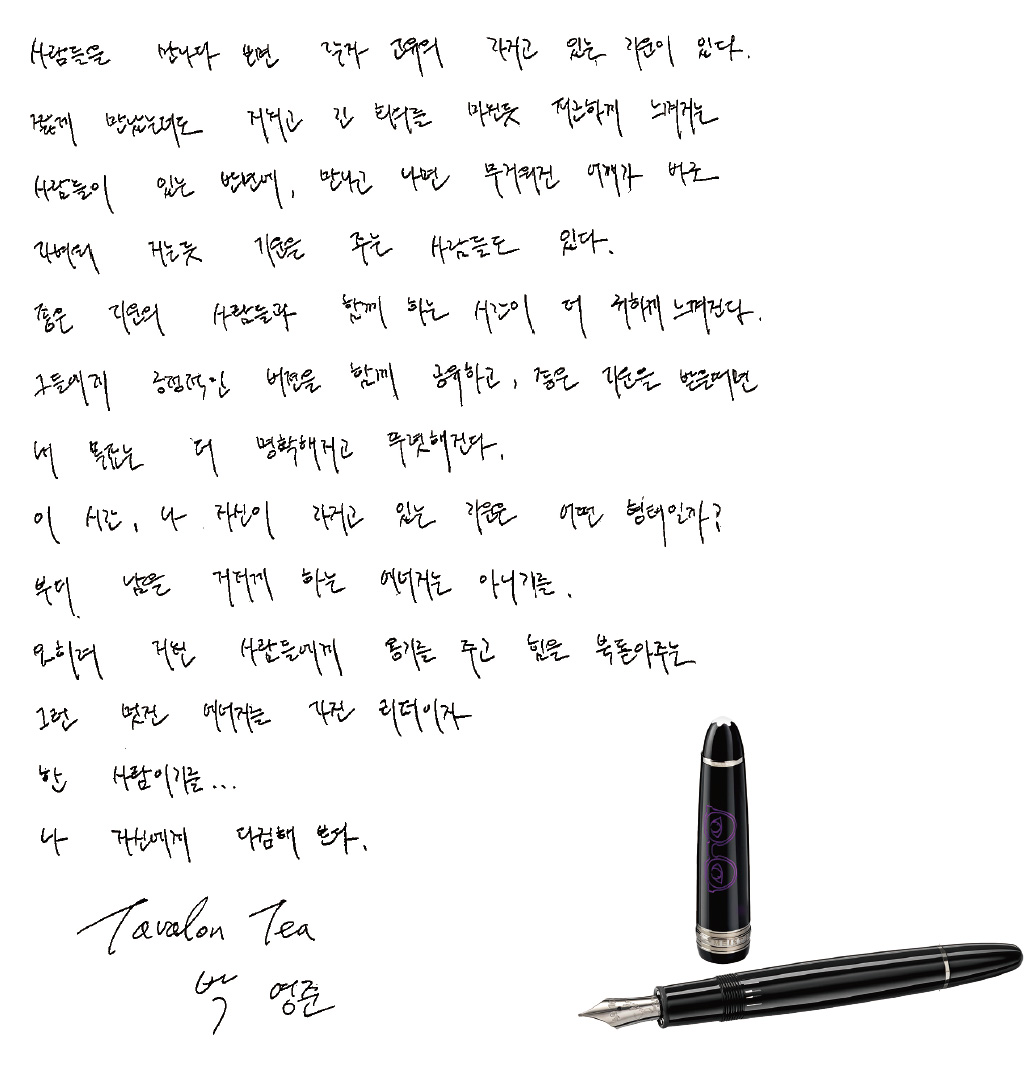 사람들을 만나다 보면 각자 고유의 가지고 있는 기운이 있다.
짧게 만났는데도 지치고 긴 회의를 마친듯 적근하게 느껴지는
사람들이 있는 반면에, 만나고 나면 무거워진 어깨가 바로
지혜의 기운을 주는 사람들도 있다.
좋은 기운의 사람들과 함께 하는 시간이 더 귀하게 느껴진다.
그들에게 긍정적인 비전을 함께 공유하고, 좋은 기운을 받을때면
내 목표는 더 명확해지고 뚜렷해진다.
이 시간, 나 자신이 가지고 있는 기운은 어떤 형태일까?
부디 남을 지치게 하는 에너지는 아니기를.
오히려 지친 사람들에게 용기를 주고 힘을 북돋아주는
그런 멋진 에너지를 가진 리더이자
한 사람이기를...
나 자신에게 다짐해 본다.
Tavalon Tea
박 영준